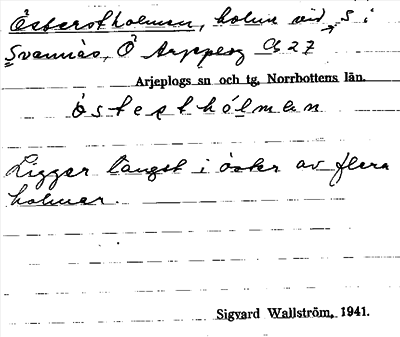 Österstholmen, holm vid S i
Svannäs, Ö Arjeplog C 27
Arjeplogs sn och tg, Norrbottens län.
östesthólmen
Ligger längst i öster av flera
holmar.
Sigvard Wallström, 1941.